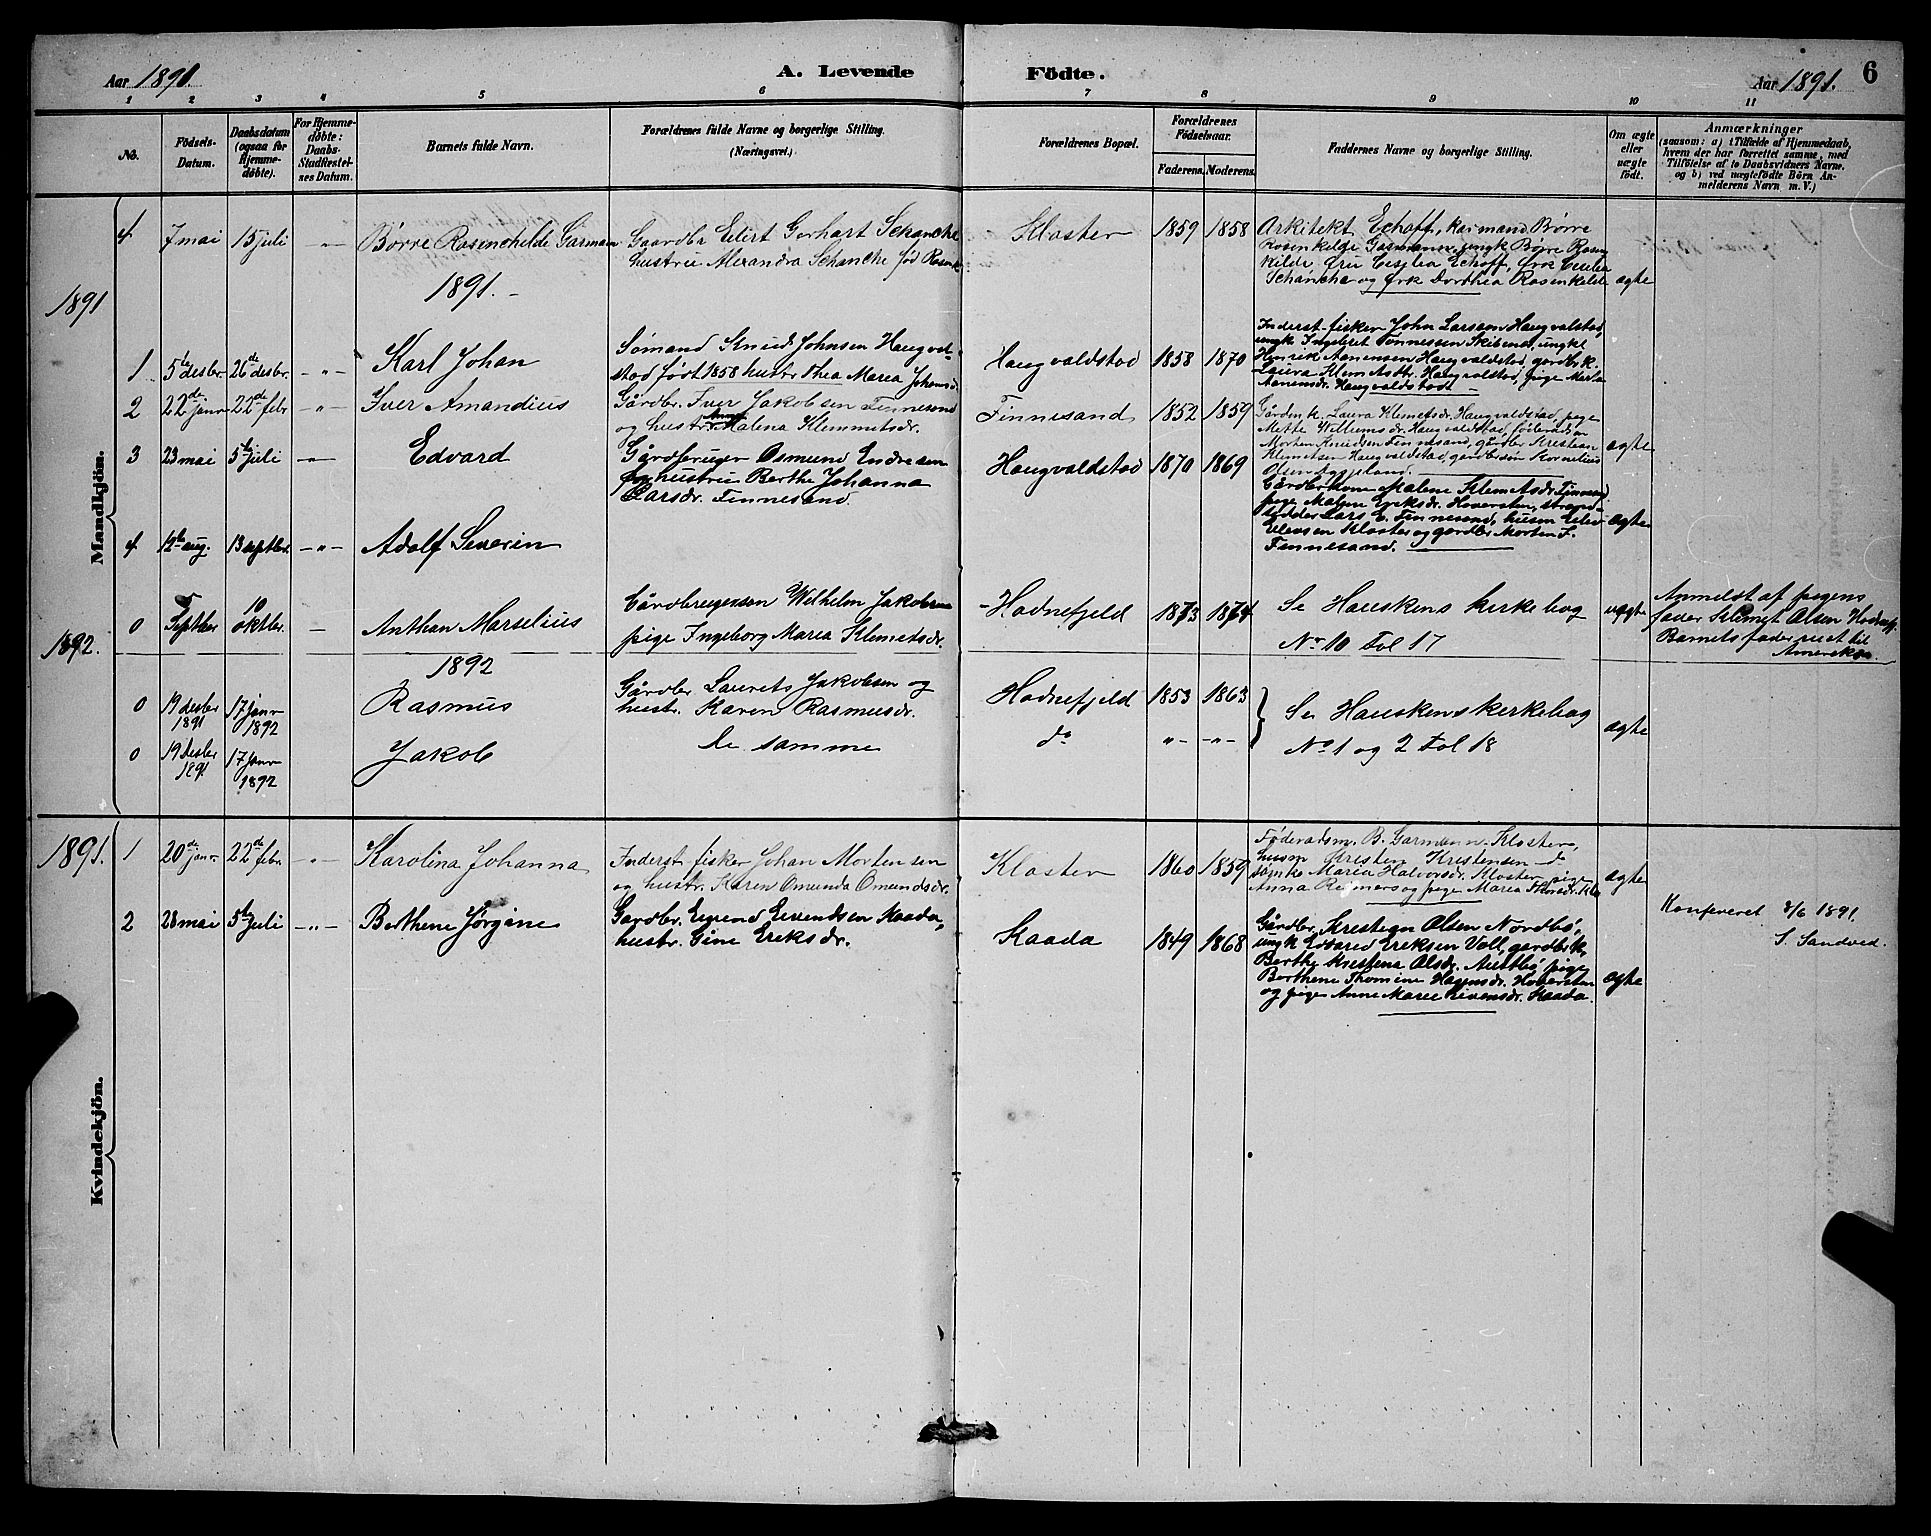 Aar 1891.
A. Levende Födte.
Aar 1891.
6
1 2 3 4 5 6 7 8 9 10 11
No.
Födsels-
Datum.
Daabsdatum
(ogsaa for
Hjemme-
döbte).
For Hjemme-
döbte:
Daabs-
Stadfæstel-
ses Datum.
Barnets fulde Navn.
Forældrenes fulde Navne og borgerlige Stilling.
(Næringsvei.)
Forældrenes Bopæl.
Forældrenes
Födselsaar.
Faderens. Moderens.
Faddernes Navne og borgerlige Stilling.
Om ægte
eller
uægte
födt.
Anmærkninger
(saasom: a) i Tilfælde af Hjemmedaab,
hvem der har forrettet samme, med
Tilföielse af to Daabsvidners Navne,
og b) ved uægtefödte Börn An-
melderens Navn m. V.)
Mandkjön.
4 7 mai 15 juli -"- Børre Rosenchilde Garman
Gaardbr Eilert Gerhart Schanche
hustru Alexandra Schanche fød Rosenk
Kloster 1859 1858
Arkitekt Echoff, Børre
Rosenkilde Garmann, ungk Børre Rosen
kilde fru Cesilia Echoff, frk Cecilia
Schanche og frk Dorthea Rosenkilde
ægte
1891
1891.-
1 5te desbr. 26de desbr. -"- Karl Johan
Sømand Knud Johnsen Haugval-
stad født 1858 hustr. Thea Maria Johansd
Haugvaldstad 1858 1870
Inderst-fisker John Larsen Haugvalstad,
ungk Ingebret Tønnessen Skibenes, ungk
Henrik Aanensen Haugvaldstad, gardbr.k.
Laura Klemetsdtr. Haugvalstad, pige Marta
Aanensdr. Haugvaldstad
2 22de janr 22de febr -"- Iver Amandius
Gårdbr. Iver Jakobsen Finnesand
og hustr. Anne Malena Klemmetsdr.
Finnesand 1852 1859
Gårdm k. Laura Klemetsdr. Haugvaldstad, pige
Mette Willumsdr. Haugvaldstad, føderådsm
Morten Knudsen Finnesand, gårdbr Kristian
Klemetsen Haugvaldstad, gardbrsøn Kornelius
Olsen
ægte
3 23 mai 5te juli -"- Edvard
Gårdbruger Osmund Endresen
hustru Berthe Johanna
Larsdr. Finnesand.
Haugvaldstad 1870 1869
Gårdbr. kone Malene Klemetsdr. Finnesand
pige Malene Eriksdr. Hoversten, strand-
sidder Lars E. Finnesand, husm Eilev
Eilevsen Kloster og gardbr Morten I.
Finnesand.
ægte
4 12te aug. 13 septbr. -"- Adolf Severin
0 5 Septber 10 oktbr. - Anthan Marselius
Gårdbrugersøn Wilhelm Jakobsen
pige Ingeborg Maria Klemetsdr.
Hodnefjeld 1873 1874
Se Hauskens kirkebog
No 10 Fol 17
uægte
Anmeldt af pigens
fader Klemet Olsen Hodnefj.
Barnets fader reist til
Amerika.
1892.
1892
0 19 desbr 1891 17 janr 1892 Rasmus
Gårdbr Laurets Jakobsen og
hustr. Karen Rasmusdr.
Hodnefjeld 1853 1863
Se Hauskenskirkebog
No 1 og 2 Fol 18
ægte
0 19 desbr 1891 17 janr 1892 Jakob
De samme
do "- -"-
Kvindekjön.
1891.
1 20de janr. 22de febr. -"- Karolina Johanna
Inderst fisker Johan Mortensen
og hustr. Karen Omunda Omundsdr.
Kloster 1860 1859
Føderadsm. B. Garmann Kloster,
husm Kristen Kristensen do
Maria Halvorsdr. Kloster, pige
Anna Reimers og pige Maria
ægte
2 28 mai 5te juli -"- Berthene Jørgine
Gardbr. Eivend Eivendsen Kaada,
hustr. Gine Eriksdr.
Kaada 1849 1868
Gårdbr. Kristian Olsen Nordbø,
ungk Edvard Eriksen Voll, gardbr.k.
Berthe Kristena Olsdr. Austbø, pige
Berthene Thomine Hagensdr. Hoversten
og pige Anne Marie Eivensdr. Kaada.
ægte
Konfereret 8/6 1891.
S. Sandved.